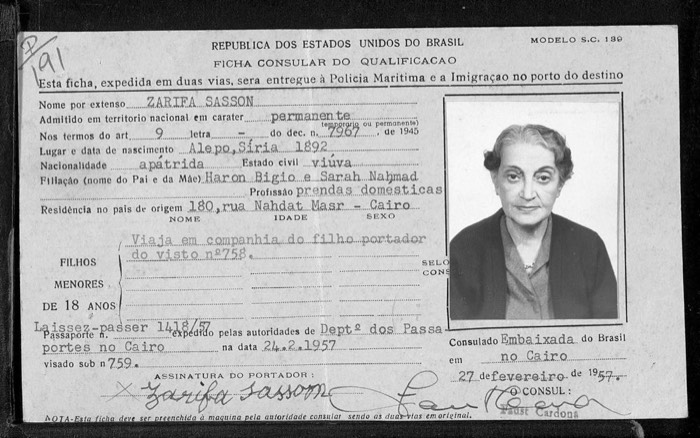 P/191
REPUBLICA DOS ESTADOS UNIDOS DO BRASIL
MODELO S.C. 139
FICHA CONSULAR DO QUALIFICACAO
Esta ficha, expedida em duas vias, sera entregue à Policia Maritima e a Imigraçao no porto do destino
Nome por extenso ZARIFA SASSON
Admitido em territorio nacional em carater permanente
(temporario ou permanente)
Nos termos do art. 9 letra - do dec. n. 7967, de 1945
Lugar e data de nascimento Alepo, Síria 1892
Nacionalidade apátrida Estado civil viúva
Filiação (nome do Pai e da Mãe) Haron Bigio e Sarah Nahmad
Profissão prendas domesticas
Residência no pais de origem 180, rua Nahdat Masr - Cairo
NOME IDADE SEXO
FILHOS MENORES DE 18 ANOS
Viaja em companhia do filho portador
do visto nº758.
SELO
CONS
Laissez-passer 1418/57
Passaporte n. expedido pelas autoridades de Deptº dos Passa
portes no Cairo na data 24.2.1957
visado sub n 759.
Consulado Embaixada do Brasil
em no Cairo
27 de fevereiro de 1957.
ASSINATURA DO PORTADOR:
X Zarifa Sassom
O CONSUL:
Faust Cardona
NOTA-Esta ficha deve ser preenchida à maquina pela autoridade consular sendo as duas vias em original.